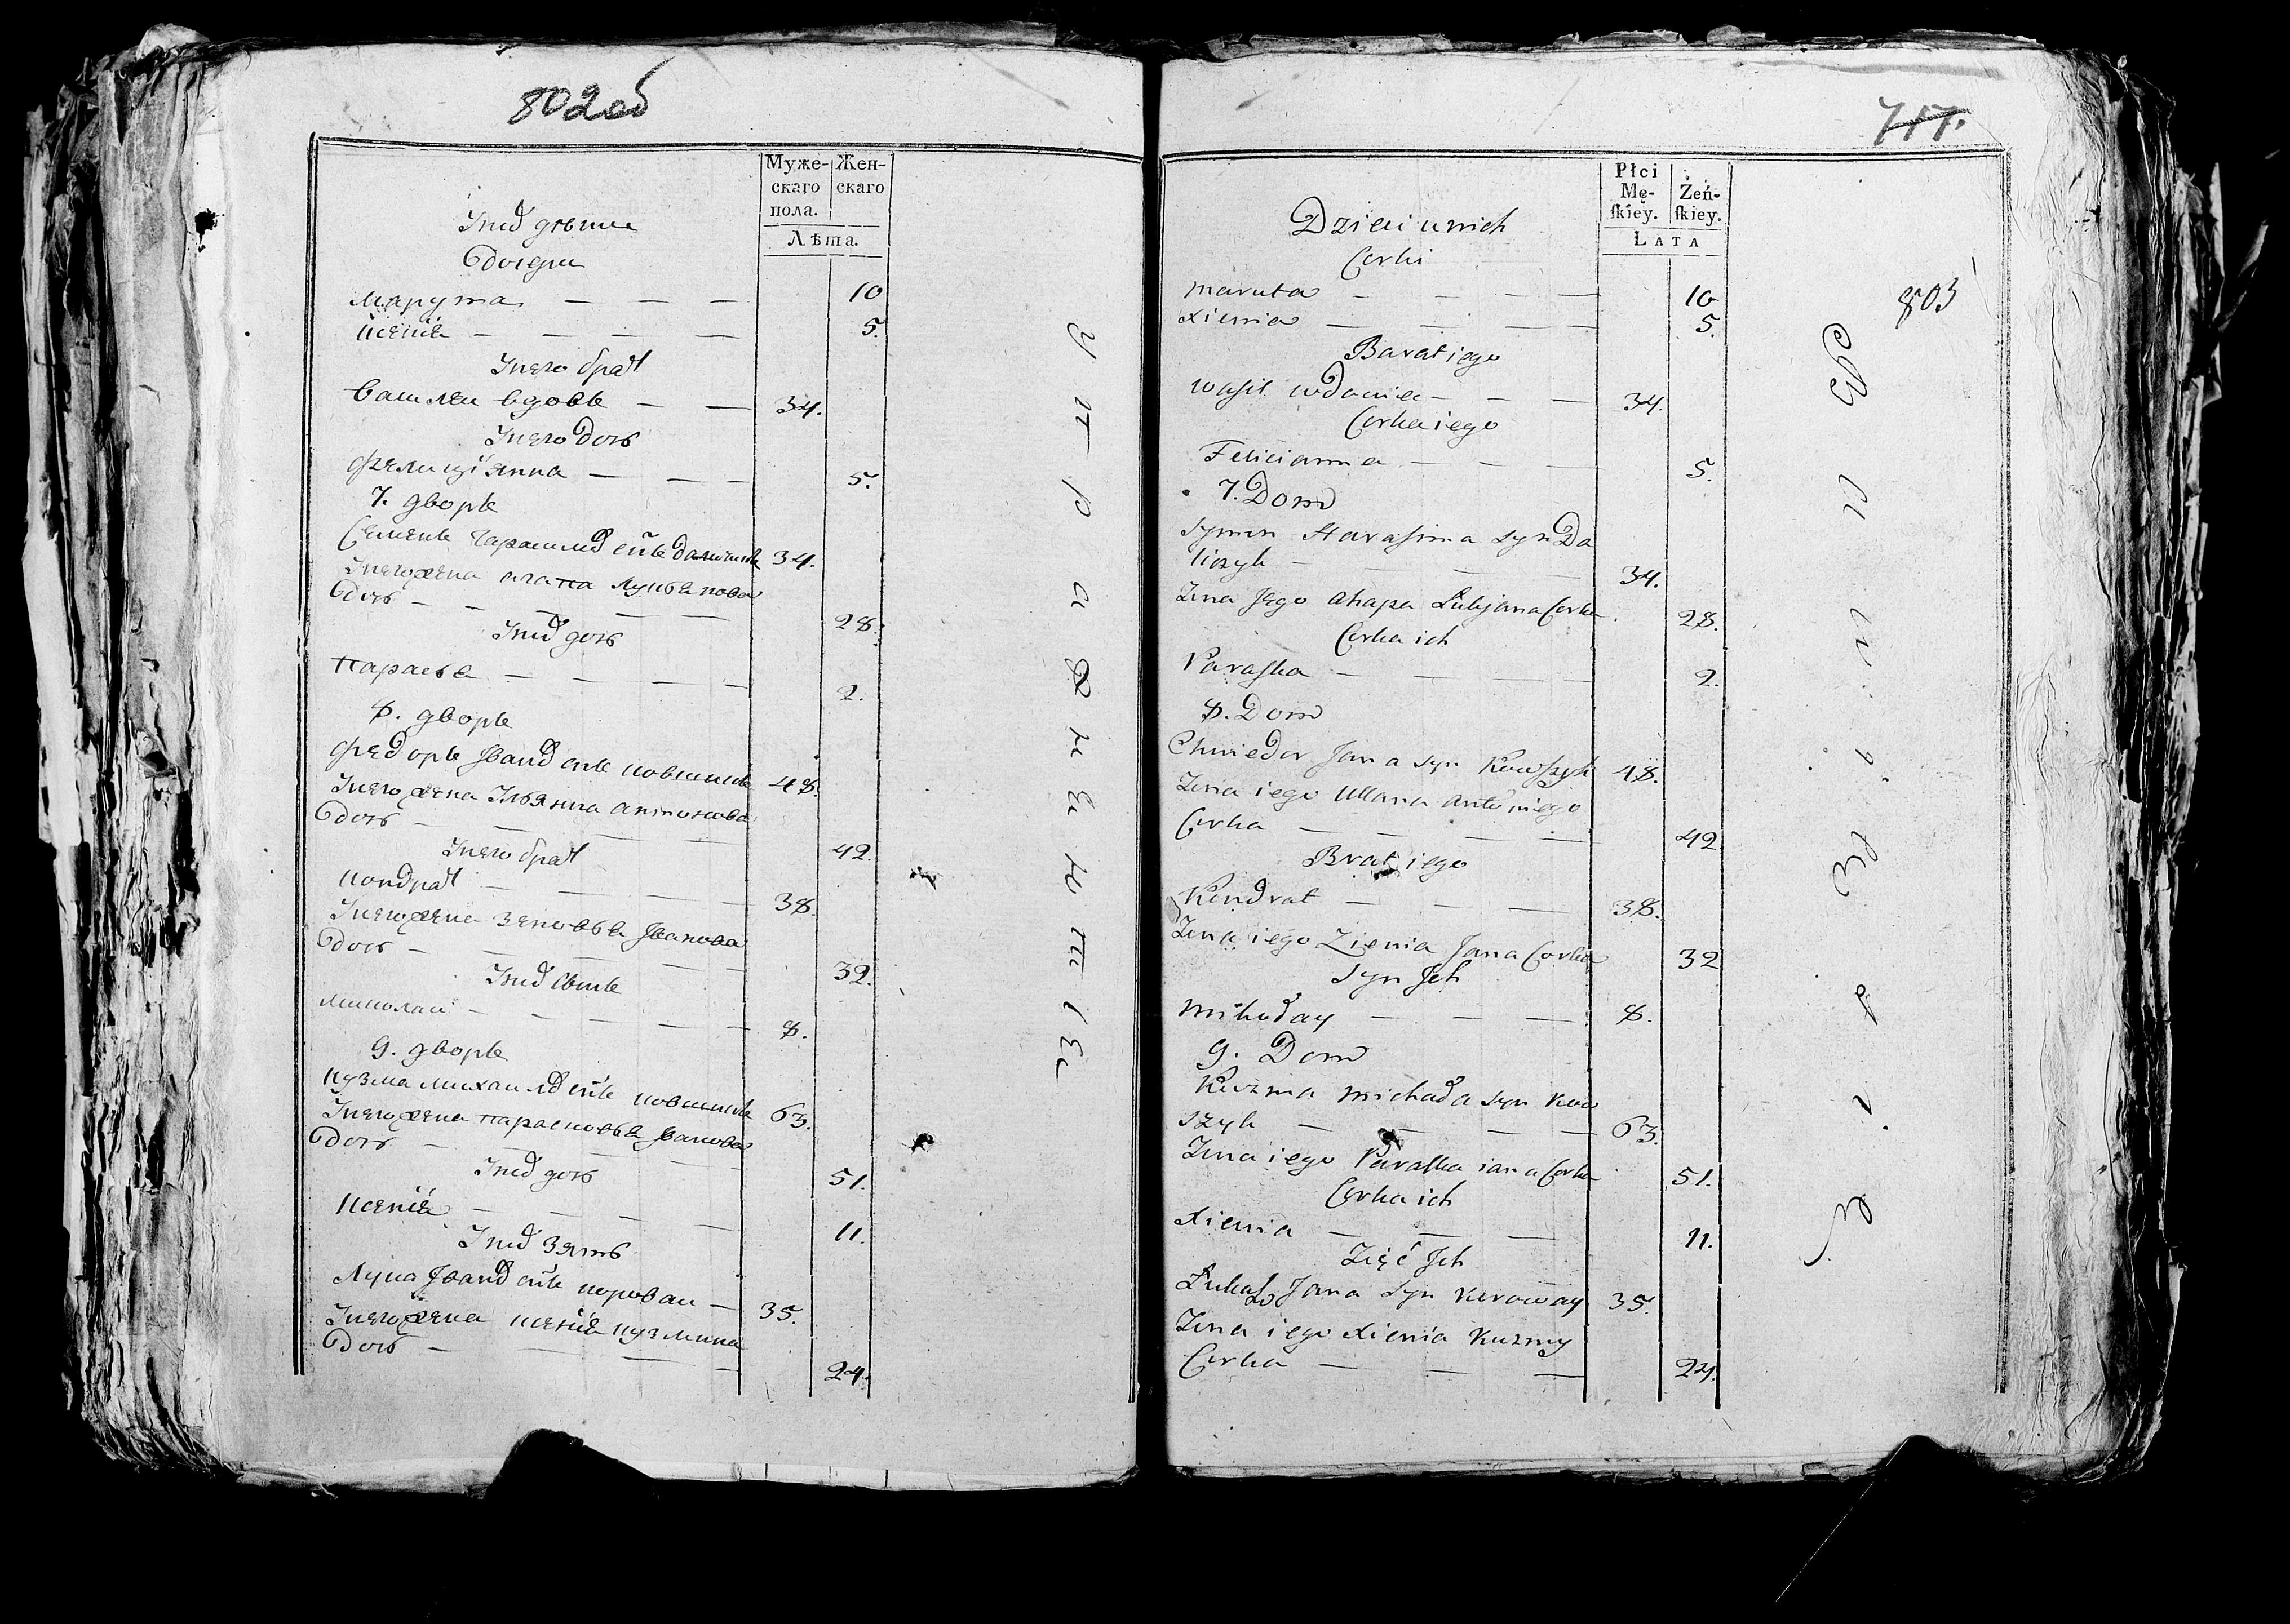 802 об
Муже-
скаго
пола.
Жен-
скаго
Лѣта.
Ихъ дѣти
дочери
Марута — — — 10
Ксения — — — — 5.
У него братъ
Василеи вдовъ — — 34.
У него дочь
Фелицианна — — — 5.
7. дворъ
Семенъ Гарасимовъ сынъ 34.
У него жена Агапа Лукьянова
дочь — — — — 28.
У них дочь
Параска — — — — 2.
8. дворъ
Федоръ Ивановъ сынъ Ковшикъ 48.
У него жена Ульянна Антонова
дочь — — — — 42.
У него братъ
Кондратъ — — — 38.
У него жена Зеновья Иванова
дочь — — — — 32.
У них сынъ
Миколаи — — — — — 8.
9. дворъ
Кузма Михаиловъ сынъ Ковшикъ 63.
У него жена Парасковья Иванова
дочь — — — — 51.
У них дочь
Ксения — — — — 11.
У них зять
Лука Ивановъ сынъ Короваи — 35.
У него жена Ксения Кузмина
дочь — — — — 24.
717.
803
Płci
Mę-
skiey.
Żeń-
skiey.
Lata
Dzieci u nich
Corki
Maruta — — — — 10
Xienia — — — 5.
Barat iego
Wasil wdowiec — — — 34.
Corka iego
Felicianna — — — 5.
7. Dom
Symon Harasima syn Da
liczyk — — — 34.
Zona Jego Ahapa Łukjana Corka 28.
Corka ich
Paraska — — — — 2.
8. Dom
Chwiedor Jana syn Kowszyk 48.
Zona iego Ullana Antoniego
Corka — — — — 42
Brat iego
Kondrat — — — 38.
Zona iego Zienia Jana Corka 32
Syn Jch
Mikołay — — — 8.
9. Dom
Kuzma Michała syn Kow
szyk — — — — 63.
Zona iego Paraska iana Corka 51.
Corka ich
Xienia — — — 11.
Zięć Jch
Łukasz Jana syn Karoway 35.
Zona iego Xienia Kuzmy
Corka — — — 24.